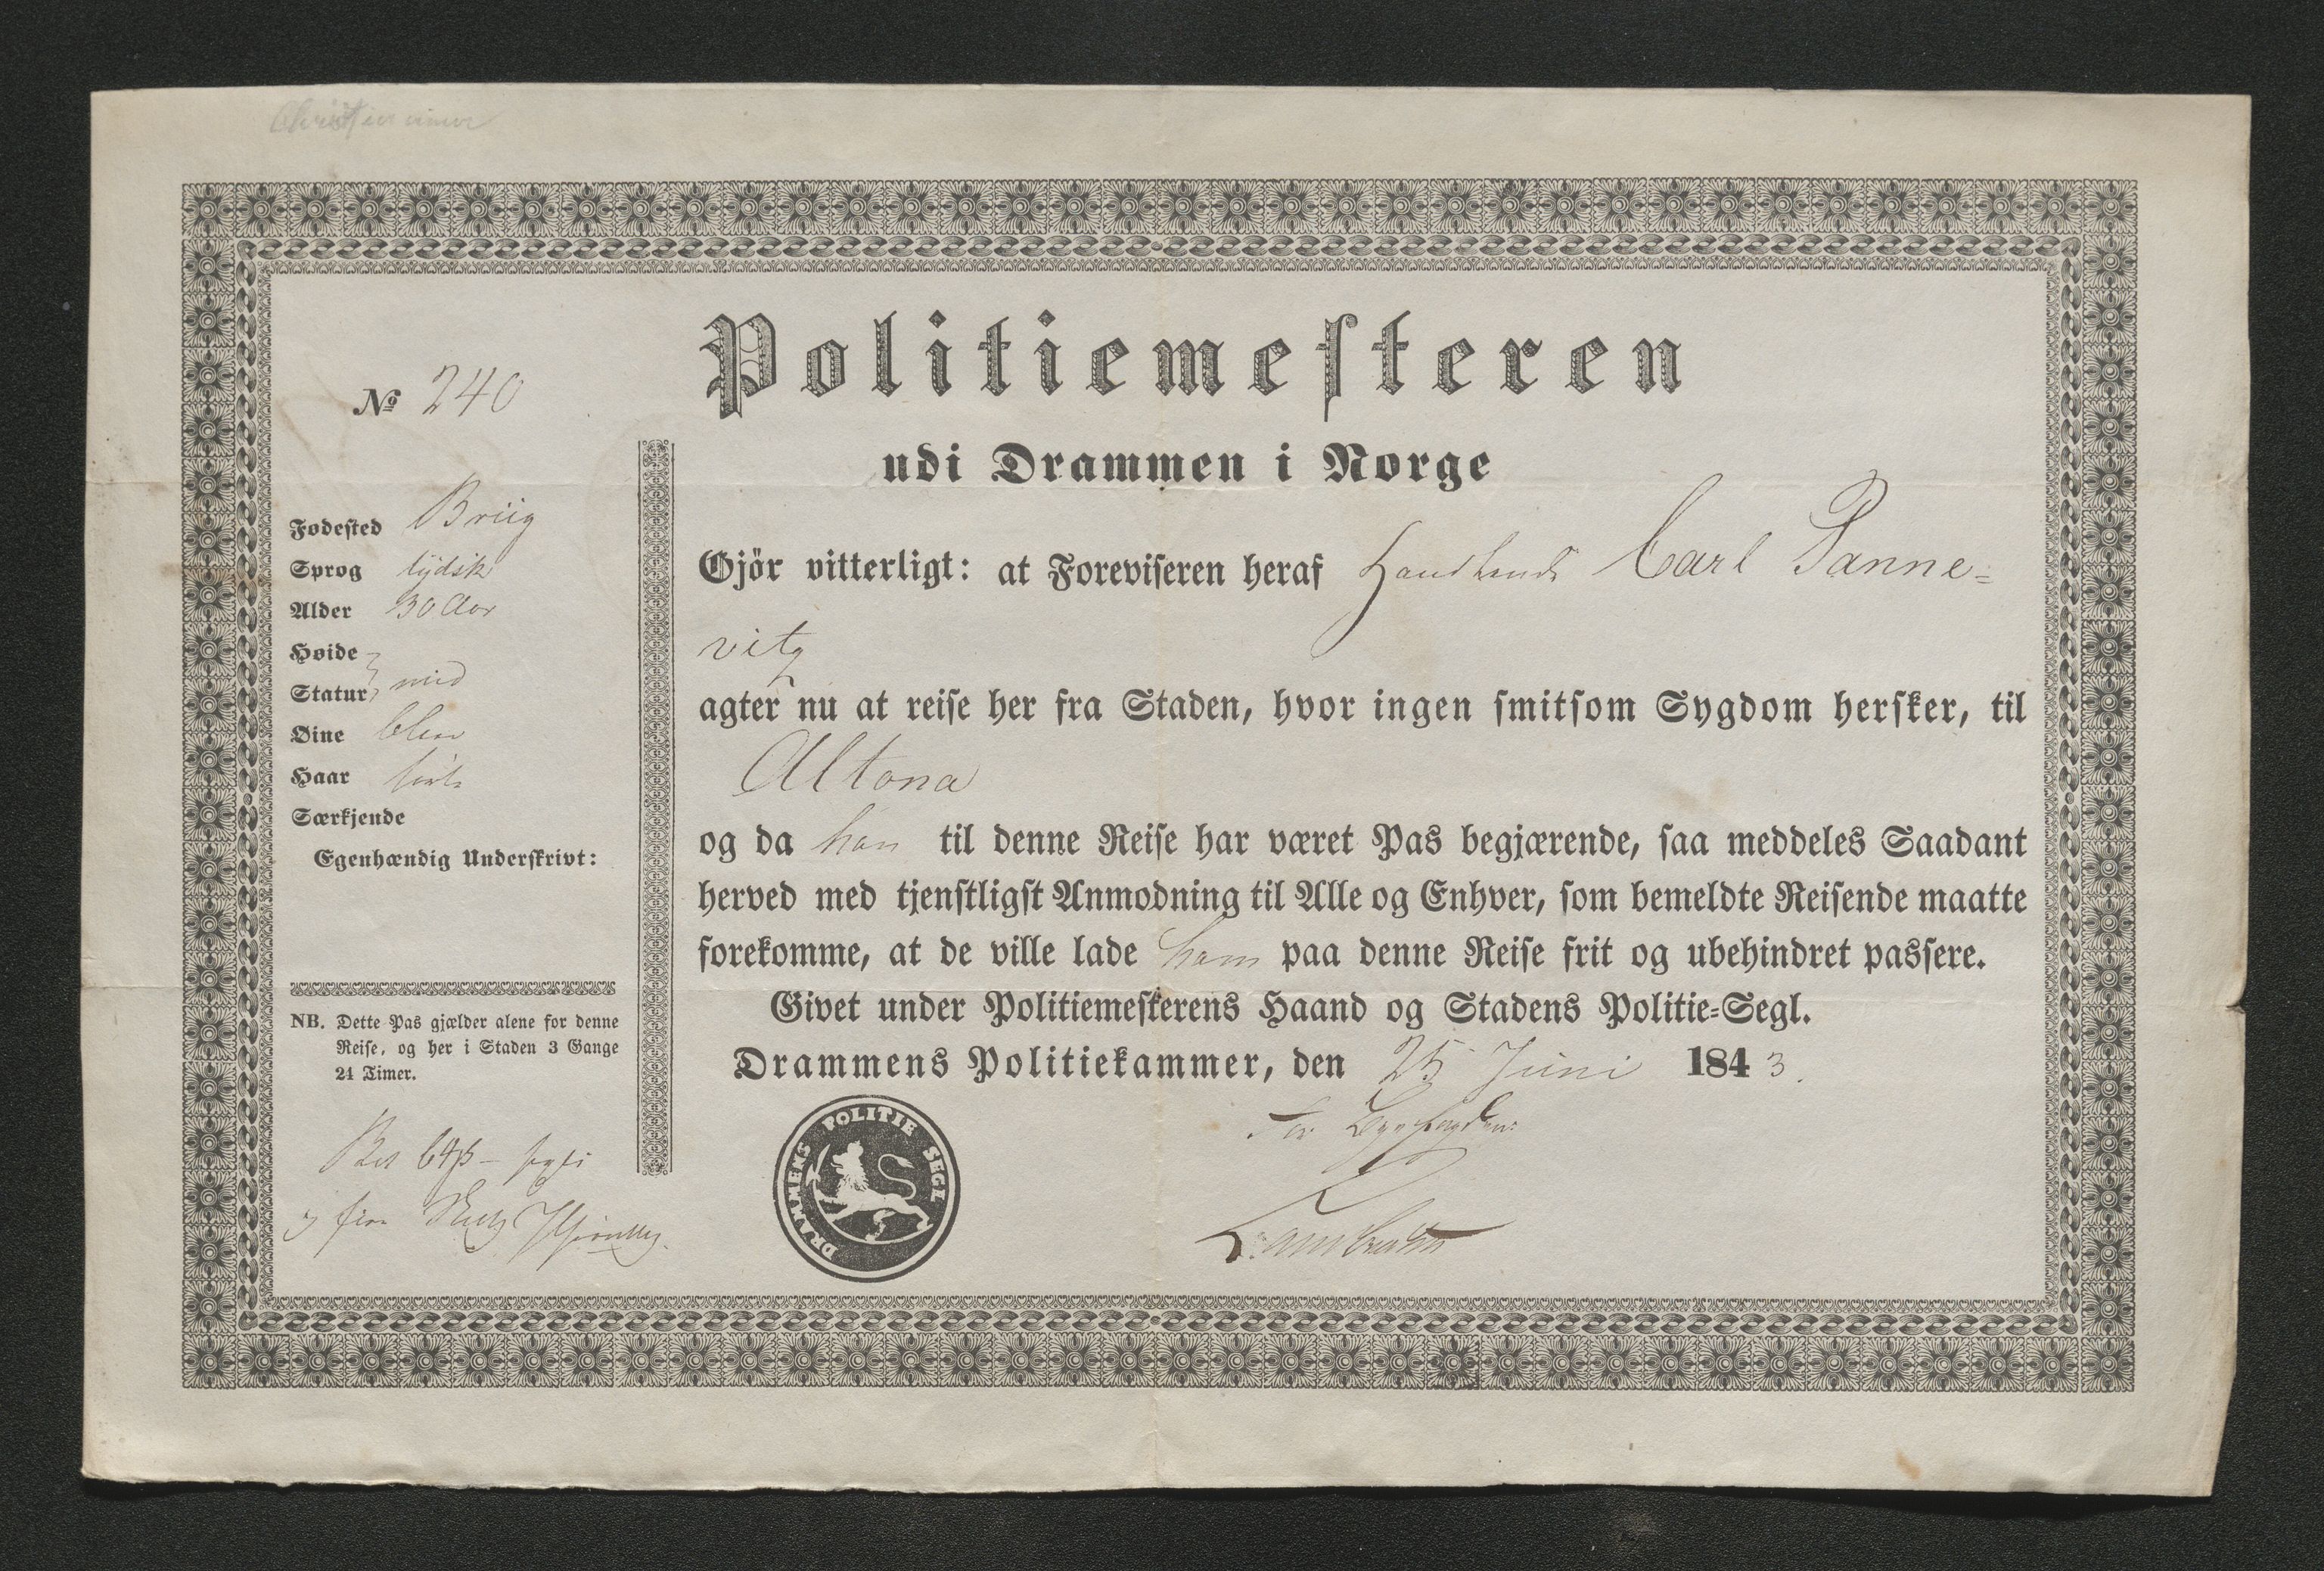 Politiemesteren
udi Drammen i Norge
№ 240
Fødested Briig
Sprog tydsk
Alder 30 Aar
Høide
Statur mid
Øine blaa
Haar
Særkjende
Egenhændig Underskrivt:
NB. Dette Pas gjælder alene for denne
Reise, og her i Staden 3 Gange
24 Timer.
Gjör vitterligt: at Foreviseren heraf Carl Panne-
vitz
agter nu at reise her fra Staden, hvor ingen smitsom Sygdom hersker, til
Altona
og da han til denne Reise har været Pas begjærende, saa meddeles Saadant
herved med tjenstligst Anmodning til Alle og Enhver, som bemeldte Reisende maatte
forekomme, at de ville lade ham paa denne Reise frit og ubehindret passere.
Givet under Politiemesterens Haand og Stadens Politie-Segl.
Drammens Politiekammer, den 25 Juni 1843.
For Byefogden:
DRAMMENS POLITIE SEGL